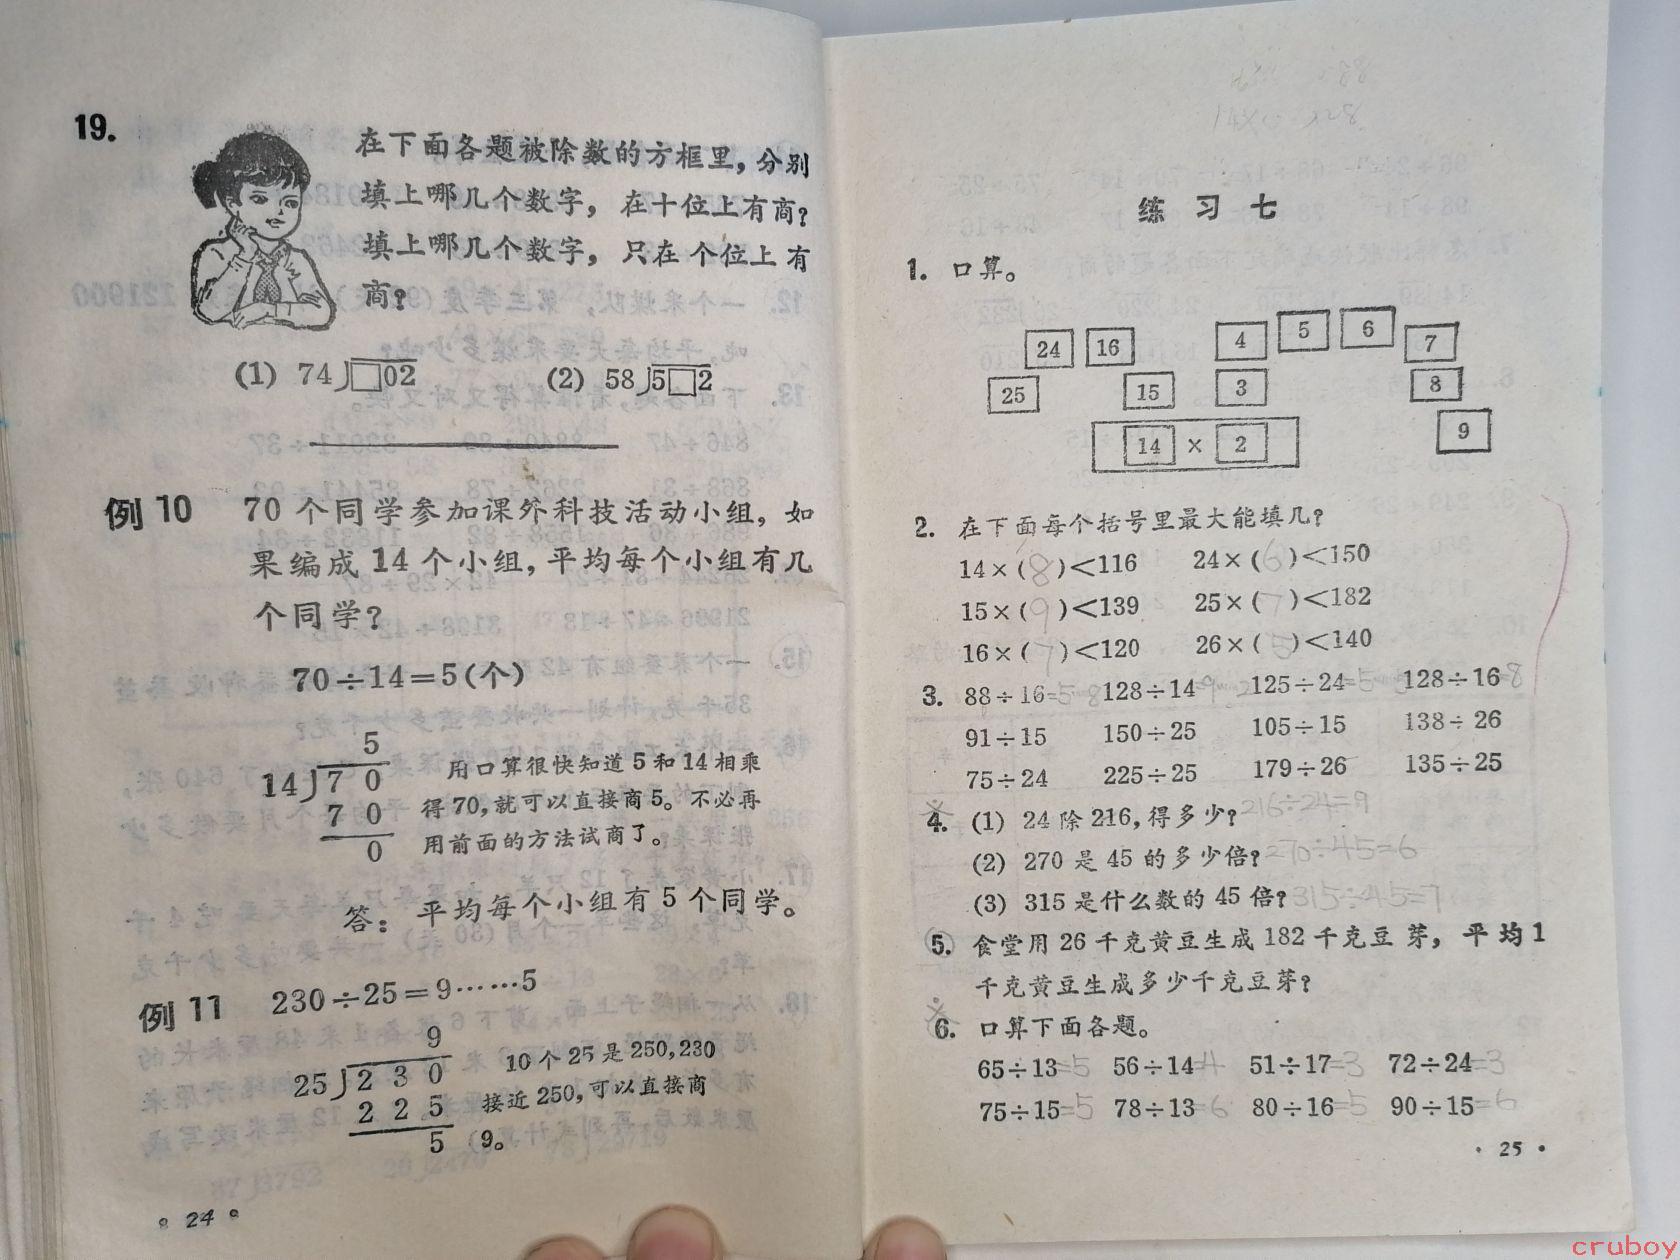 19.
在下面各题被除数的方框里，分别
填上哪几个数字，在十位上有商？
填上哪几个数字，只在个位上有
商？
(1) 74⟌□02 (2) 58⟌5□2
例10 70个同学参加课外科技活动小组，如
果编成14个小组，平均每个小组有几
个同学？
70÷14=5(个)
5
14⟌7 0
7 0
0
用口算很快知道5和14相乘
得70，就可以直接商5。不必再
用前面的方法试商了。
答：平均每个小组有5个同学。
例11 230÷25=9……5
9
25⟌2 3 0
2 2 5
5
10个25是250，230
接近250，可以直接商
9。
24
练习七
1. 口算。
24 16 4 5 6 7
25 15 3 8
14 × 2 9
2. 在下面每个括号里最大能填几？
14×(8)<116 24×(6)<150
15×(9)<139 25×(7)<182
16×(7)<120 26×(5)<140
3. 88÷16=5…8 128÷14=9…2 125÷24=5…5 128÷16=8
91÷15 150÷25 105÷15 138÷26
75÷24 225÷25 179÷26 135÷25
4. (1) 24除216，得多少？216÷24=9
(2) 270是45的多少倍？270÷45=6
(3) 315是什么数的45倍？315÷45=7
5. 食堂用26千克黄豆生成182千克豆芽，平均1
千克黄豆生成多少千克豆芽？
6. 口算下面各题。
65÷13=5 56÷14=4 51÷17=3 72÷24=3
75÷15=5 78÷13=6 80÷16=5 90÷15=6
25
cruboy